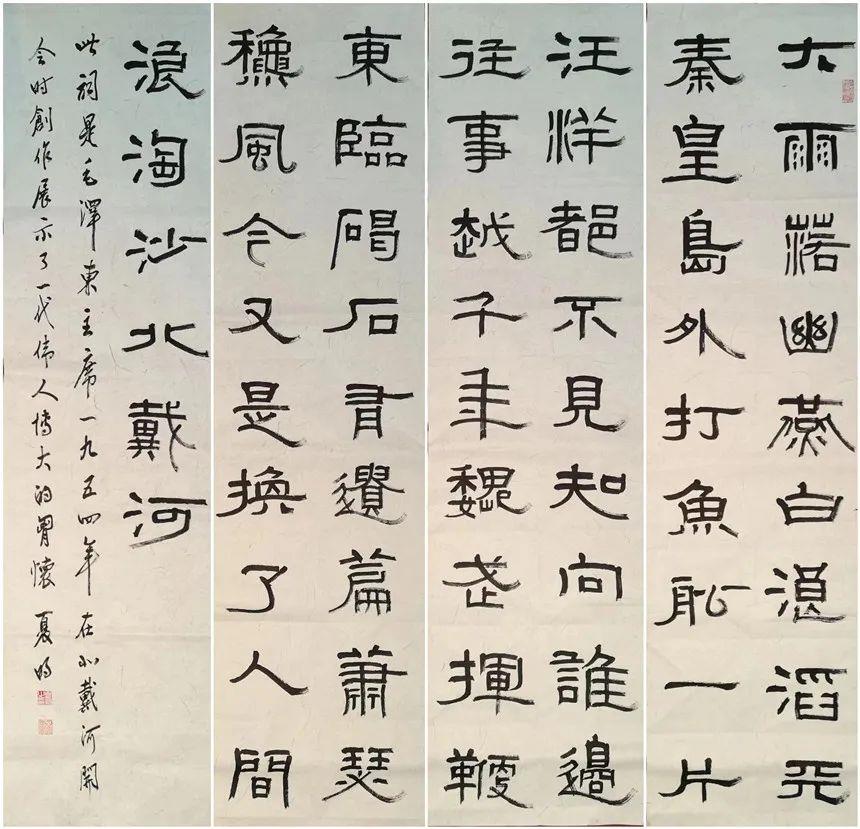 大雨落幽燕白浪滔天
秦皇島外打魚船一片
汪洋都不見知向誰邊
往事越千年魏武揮鞭
東臨碣石有遺篇蕭瑟
龝風今又是換了人間
浪淘沙北戴河
此詞是毛澤東主席一九五四年在北戴河開
会时創作展示了一代偉人博大的胷懷 夏明